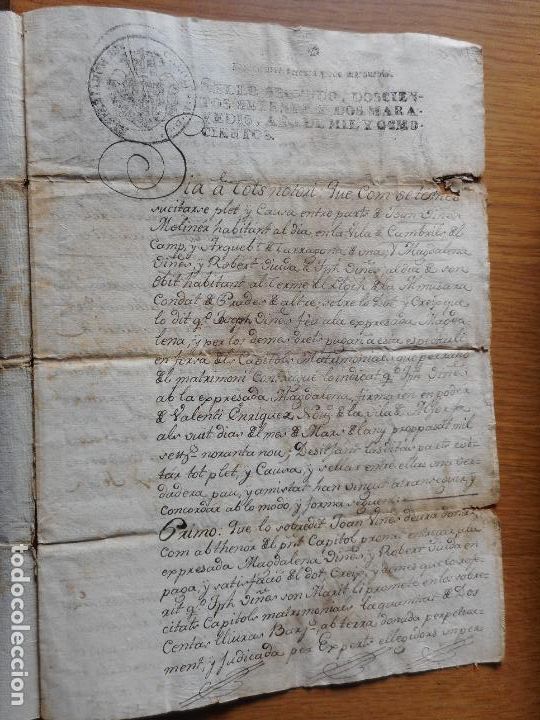 SELLO SEGUNDO, DOSCIEN-
TOS SETENTA Y DOS MARA-
VEDIS, AÑO DE MIL Y OCHO-
CIENTOS.
Sia a tots notori Que Com se temes
sucitarse plet y Causa entre parts de Joan Viñes
Moliner habitant al dia en la Vila de Cambrils del
Camp, y Arquebt de Tarragona de una; Y Magdalena
Viñes, y Robert Viuda de Jph Viñes, al dia de son
Obit habitant al terme de la
Condat de Prades de altre; sobre lo Dot, y Creix que
lo dit q. Joseph Viñes feu a la expresada Magda
lena, y per los demes drets pagar a esta espectants
en forsa dels Capitols Matrimonials que per raho
del matrimoni Contrahut lo indicat q. Jph Viñes
ab la expresada Magdalena, firmaren en poder
de Valenti Enriquez Noty de la vila de
als vuit dias del mes de Mars del any propasat mil
setz noranta nou; Desitjant las ditas parts evi
tar tot plet, y Causa, y seguir entre ellas una ver
dadera pau, y amistat han vingut a transegir, y
Concordar ab lo modo, y forma seguent:
Primo: Que lo sobredit Joan Viñes deura donar
Com ab thenor del pnt Capitol promet entregar a la
expresada Magdalena Viñes, y Robert Viuda en
paga, y satisfacio del dot Creix, y demes que lo refe
rit q. Jph Viñes son Marit li prometé en los sobre
citats Capitols matrimonials la quantitat de Dos
Centas lliuras Barz. ab terra donada perpetua
ment, y Judicada per Experts elegidors
todocoleccion